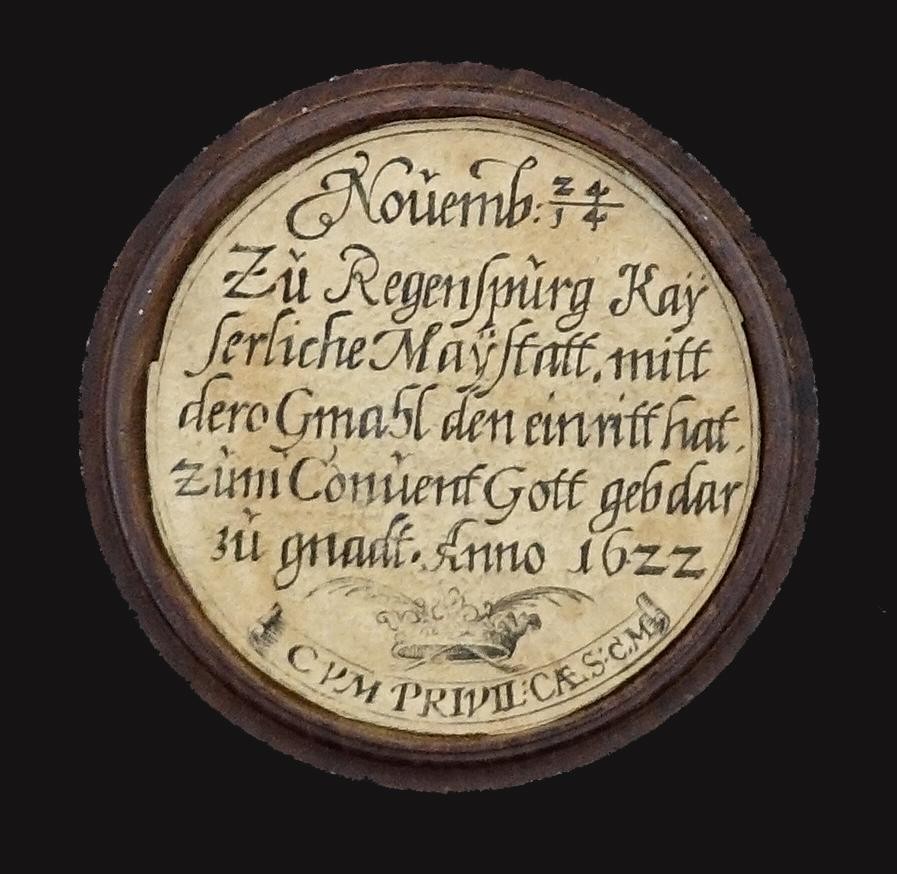 Noŭemb: 24/14
Zŭ Regenſpŭrg Kaÿ
ſerliche Maÿſtatt. mitt
dero Gmahl den einritt hat.
zŭm Conŭent Gott geb dar
zŭ gnadt. Anno 1622
CVM PRIVIL: CÆ. S. C. M